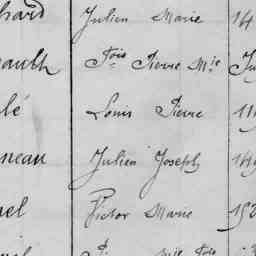 hard Julien Marie 14
ault fois Pierre Mie
lé Louis Pierre 11
neau Julien Joseph 14
el Victor Marie 15